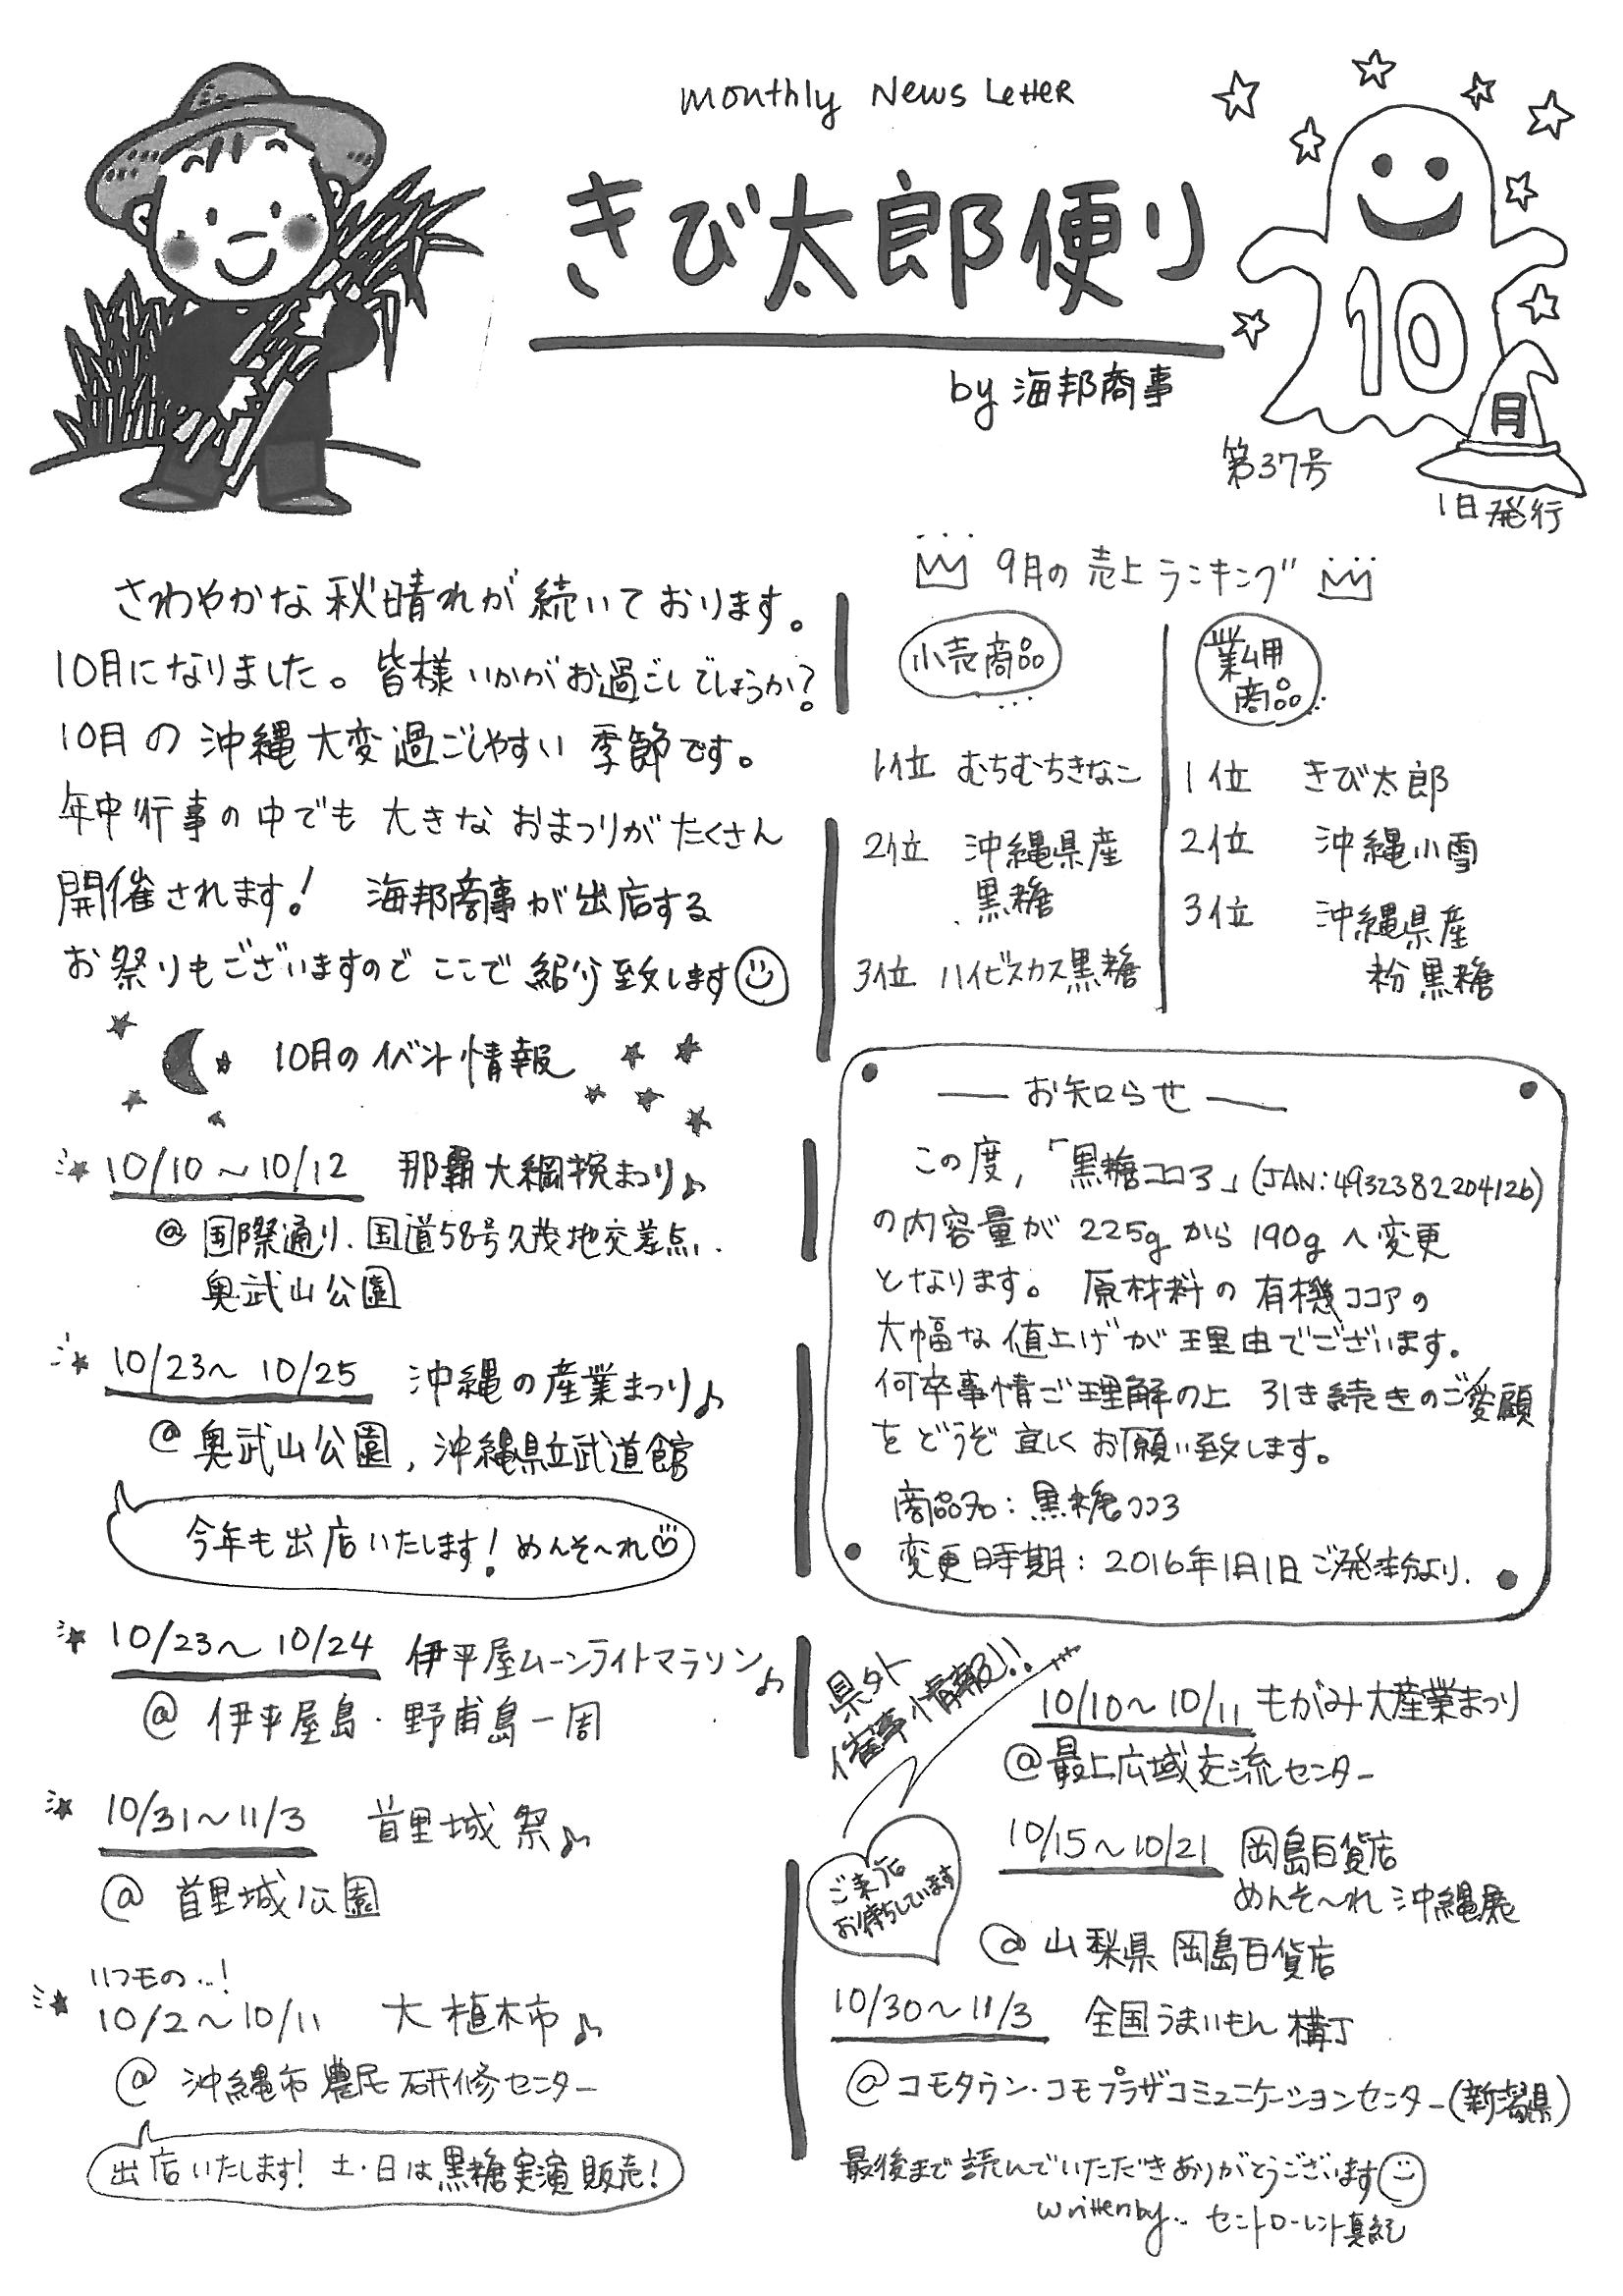 monthly News Letter
きび太郎便り
by 海邦商事
10
月
第37号
1日発行
さわやかな秋晴れが続いております。
10月になりました。皆様いかがお過ごしでしょうか?
10月の沖縄大変過ごしやすい季節です。
年中行事の中でも大きなおまつりがたくさん
開催されます! 海邦商事が出店する
お祭りもございますのでここで紹介致します
10月のイベント情報
10/10~10/12 那覇大綱挽まつり♪
@国際通り、国道58号久茂地交差点、
奥武山公園
10/23~10/25 沖縄の産業まつり♪
@奥武山公園, 沖縄県立武道館
今年も出店いたします! めんそ~れ
10/23~10/24 伊平屋ムーンライトマラソン♪
@伊平屋島・野甫島一周
10/31~11/3 首里城祭♪
@首里城公園
いつもの…!
10/2~10/11 大植木市♪
@沖縄市農民研修センター
出店いたします! 土・日は黒糖実演販売!
9月の売上ランキング
小売商品
1位 むちむちきなこ
2位 沖縄県産
黒糖
3位 ハイビスカス黒糖
業ム用
商品
1位 きび太郎
2位 沖縄小雪
3位 沖縄県産
粉黒糖
お知らせ
この度,「黒糖ココア」(JAN:4932382204126)
の内容量が225gから190gへ変更
となります。原材料の有機ココアの
大幅な値上げが理由でございます。
何卒事情ご理解の上 引き続きのご愛顧
をどうぞ宜しくお願い致します。
商品名:黒糖ココア
変更時期:2016年1月1日ご発注分より.
県外
催事情報!!
10/10~10/11 もがみ大産業まつり
@最上広域交流センター
10/15~10/21 岡島百貨店
めんそ~れ沖縄展
ご来店
お待ちしています
@山梨県岡島百貨店
10/30~11/3 全国うまいもん横丁
@コモタウン・コモプラザコミュニケーションセンター(新潟県)
最後まで読んでいただきありがとうございます
written by… セントローレント真紀